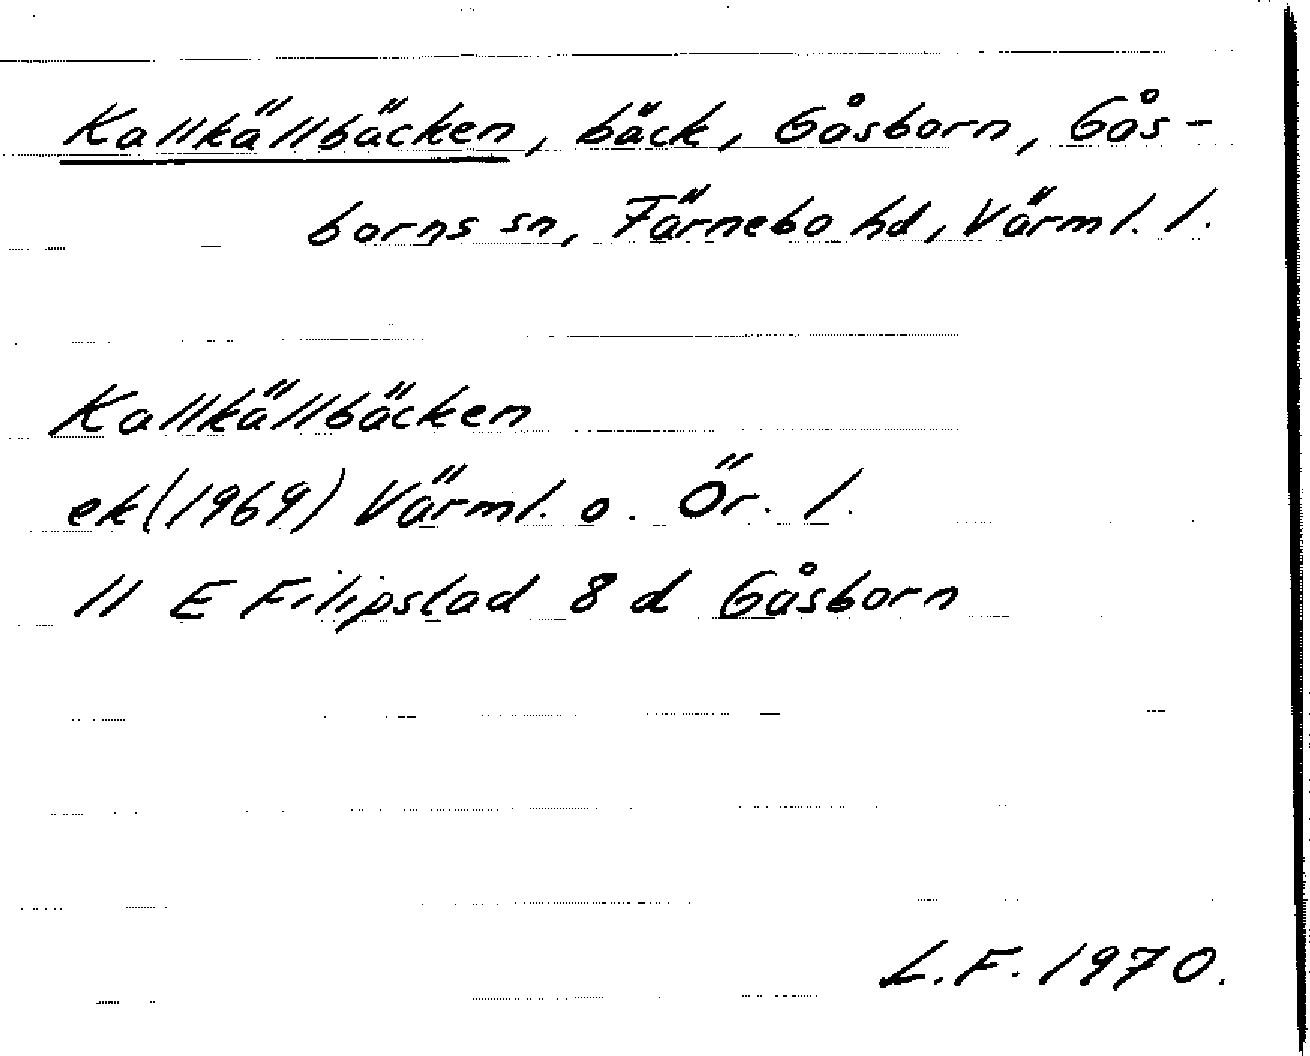 Kallkällbäcken, bäck, Gåsborn, Gås-
borns sn, Färnebo hd, Värml. l.
Kallkällbäcken
ek(1969) Värml. o. Ör. l.
11 E Filipstad 8 d Gåsborn
L.F. 1970.